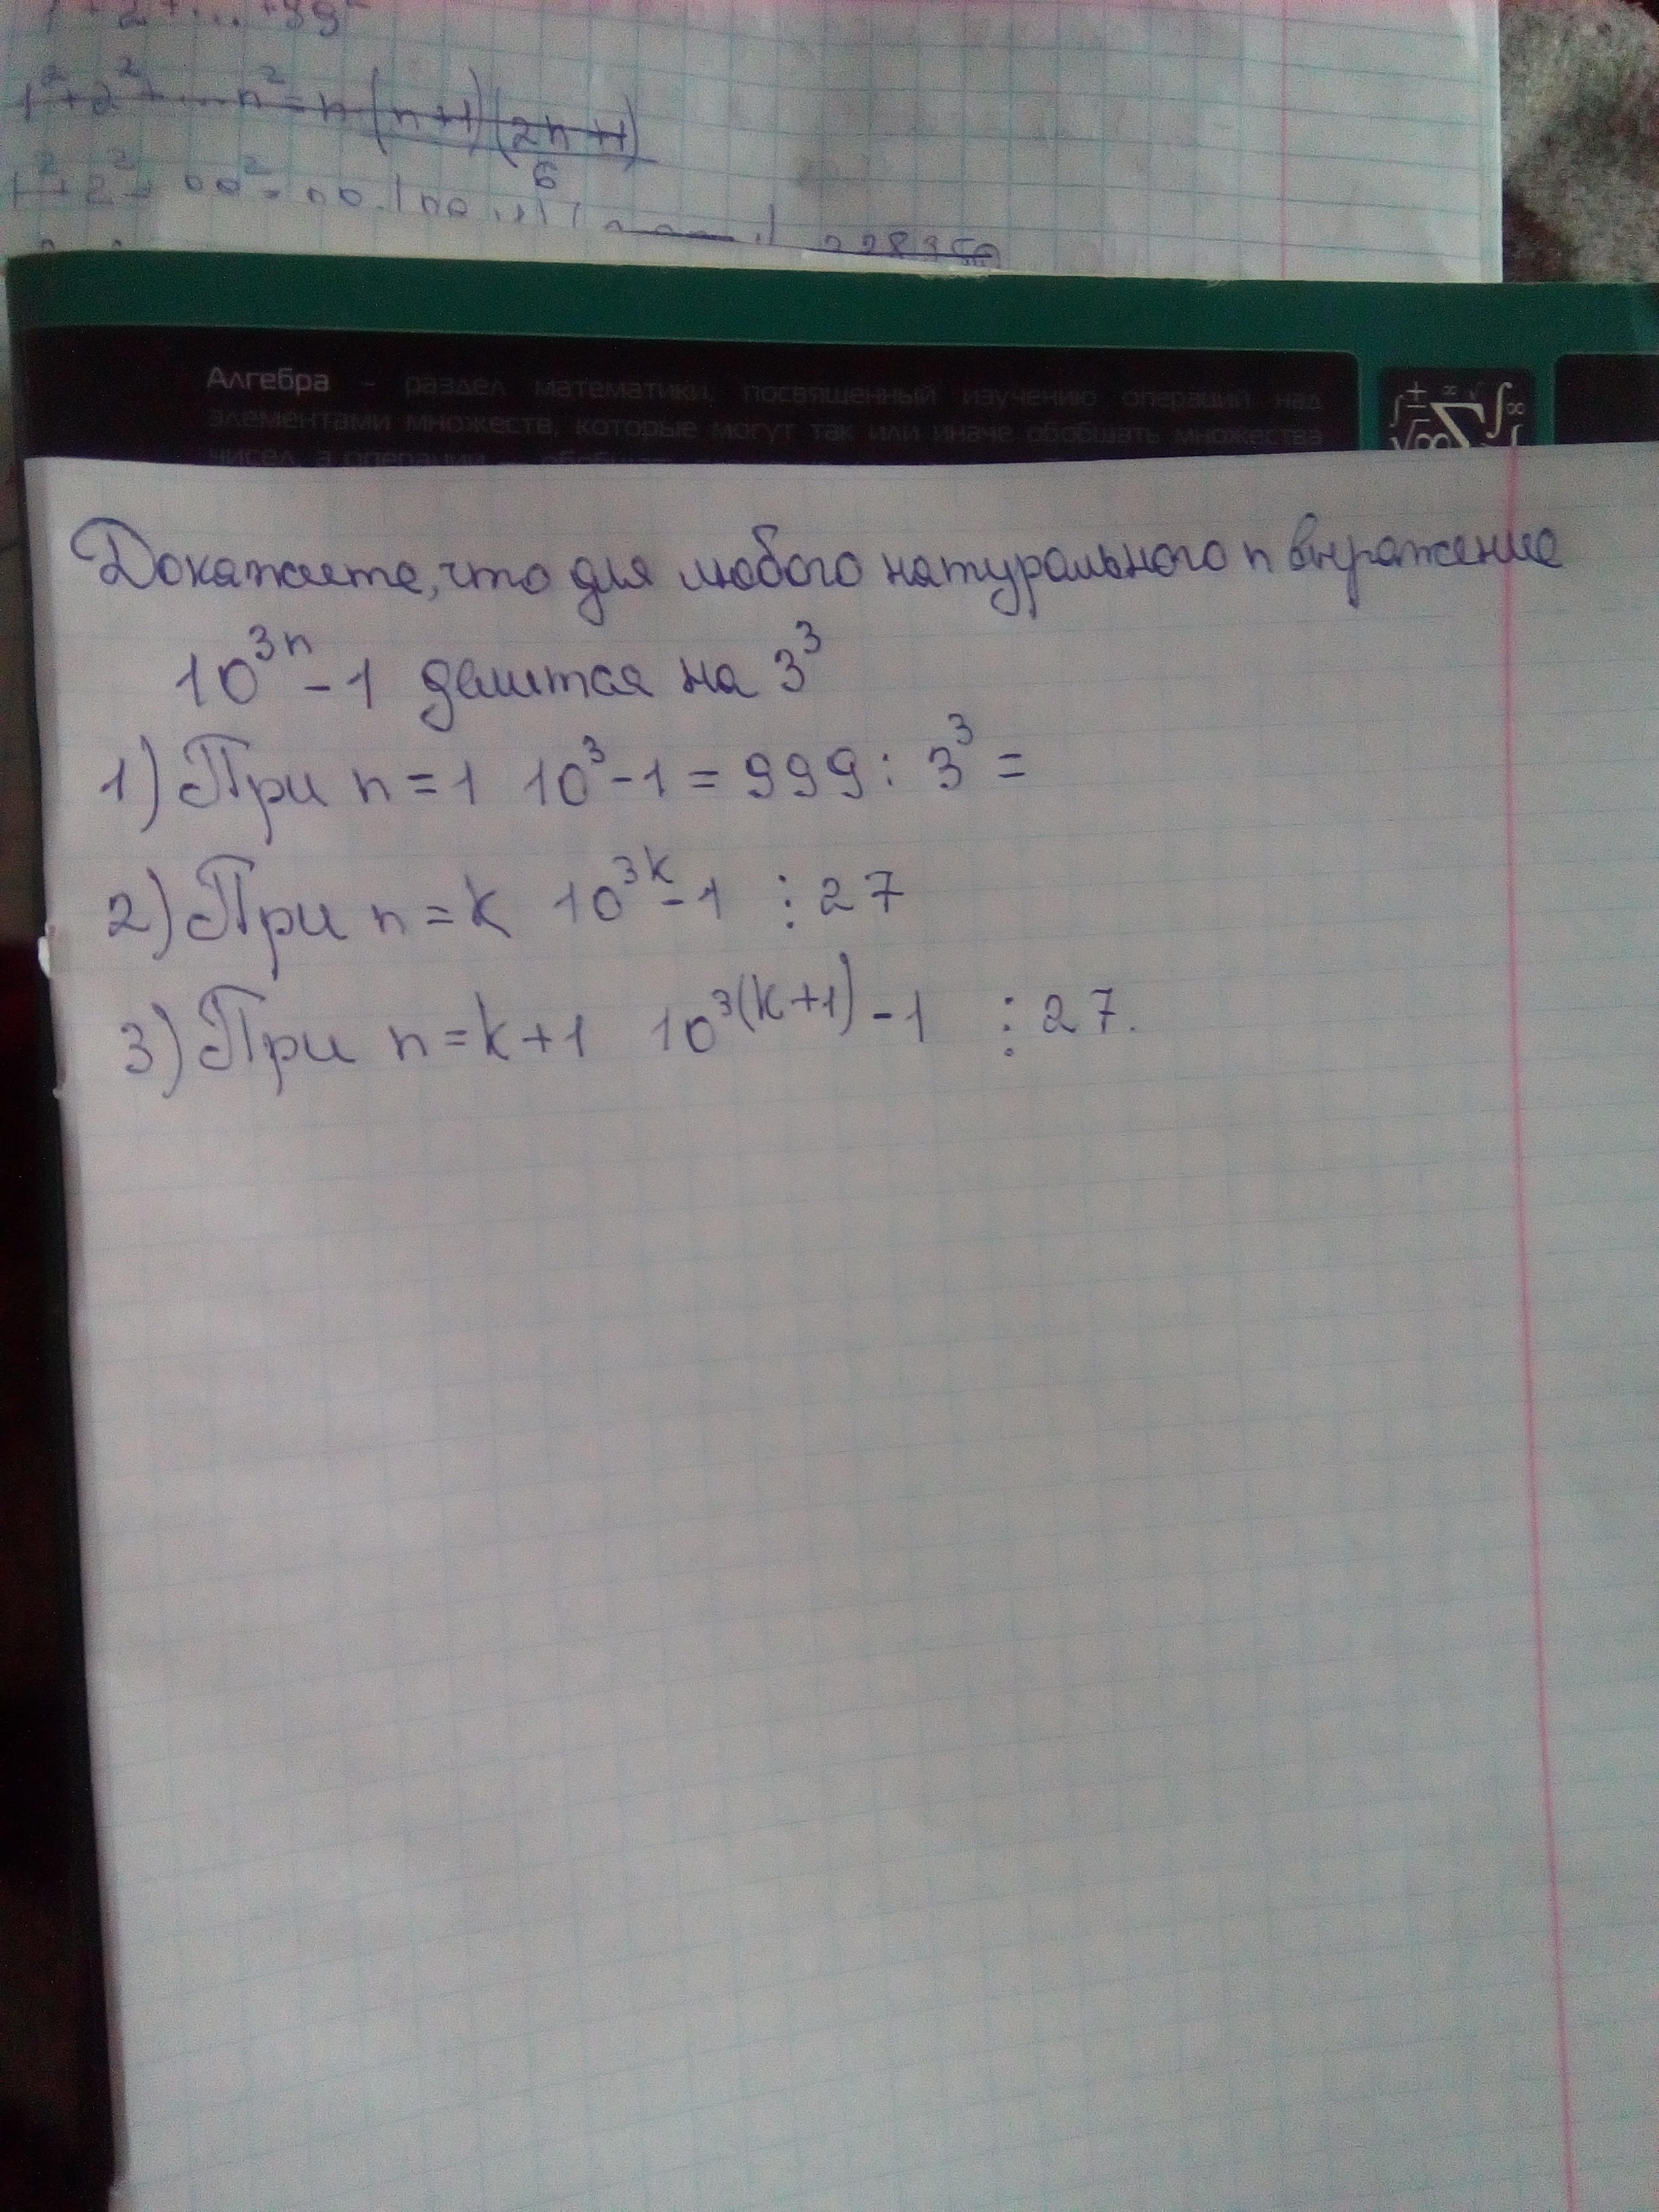 1+2+...+99²
1²+2²+...n²=n(n+1)(2n+1)
6
228350
Алгебра - раздел математики, посвященный изучению операций над
элементами множеств, которые могут так или иначе обобщать множества
чисел, а операции
Докажите, что для любого натурального n выражение
10³ⁿ-1 делится на 3³
1) При n=1 10³-1=999:3³=
2) При n=k 10³ᵏ-1 ⋮27
3) При n=k+1 10³⁽ᵏ⁺¹⁾-1 ⋮27.